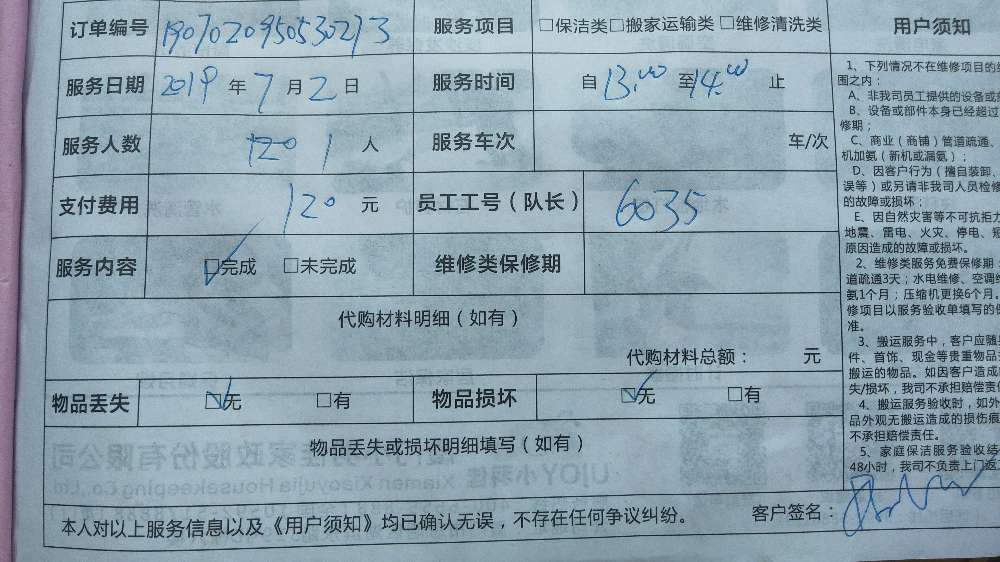 订单编号 190702095053027 3 服务项目 □保洁类□搬家运输类 □维修清洗类
服务日期 2019 年 7 月 2 日 服务时间 自 13:00 至 14:00 止
服务人数 1 人 服务车次 车/次
支付费用 120 元 员工工号（队长） 6035
服务内容 ☑完成 □未完成 维修类保修期
代购材料明细（如有）
代购材料总额： 元
物品丢失 ☑无 □有 物品损坏 ☑无 □有
物品丢失或损坏明细填写（如有）
本人对以上服务信息以及《用户须知》均已确认无误，不存在任何争议纠纷。 客户签名：
用户须知
1、下列情况不在维修项目的
围之内：
A、非我司员工提供的设备或
B、设备或部件本身已经超过
修期；
C、商业（商铺）管道疏通、
机加氨（新机或漏氨）；
D、因客户行为（擅自装卸、
误等）或另请非我司人员检修
的故障或损坏；
E、因自然灾害等不可抗拒力
地震、雷电、火灾、停电、
原因造成的故障或损坏。
2、维修类服务免费保修期：
道疏通3天；水电维修、空调
氨1个月；压缩机更换6个月。
修项目以服务验收单填写的
准。
3、搬运服务中，客户应随
件、首饰、现金等贵重物品
搬运的物品。如因客户造成
失/损坏，我司不承担赔偿责
4、搬运服务验收时，如外
品外观无搬运造成的损伤痕
不承担赔偿责任。
5、家庭保洁服务验收结
48小时，我司不负责上门返